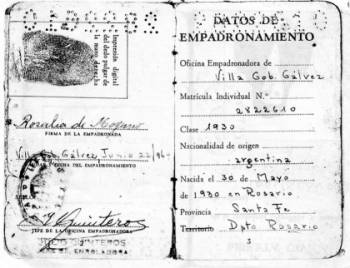 Impresión digital
del dedo pulgar de
la mano derecha
Rosalia de Moyano
FIRMA DE LA EMPADRONADA
Villa Gob. Gálvez Junio 22/964
FECHA DEL EMPADRONAMIENTO
J. Quinteros
JEFE DE LA OFICINA EMPADRONADORA
JULIO QUINTEROS
JEFE OF. ENROLADORA
DATOS DE
EMPADRONAMIENTO
Oficina Empadronadora de
Villa Gob. Gálvez
Matrícula Individual N.º
2822610
Clase 1930
Nacionalidad de origen
argentina
Nacida el 30 de Mayo
de 1930 en Rosario
Provincia Santa Fe
Territorio Dpto Rosario
3